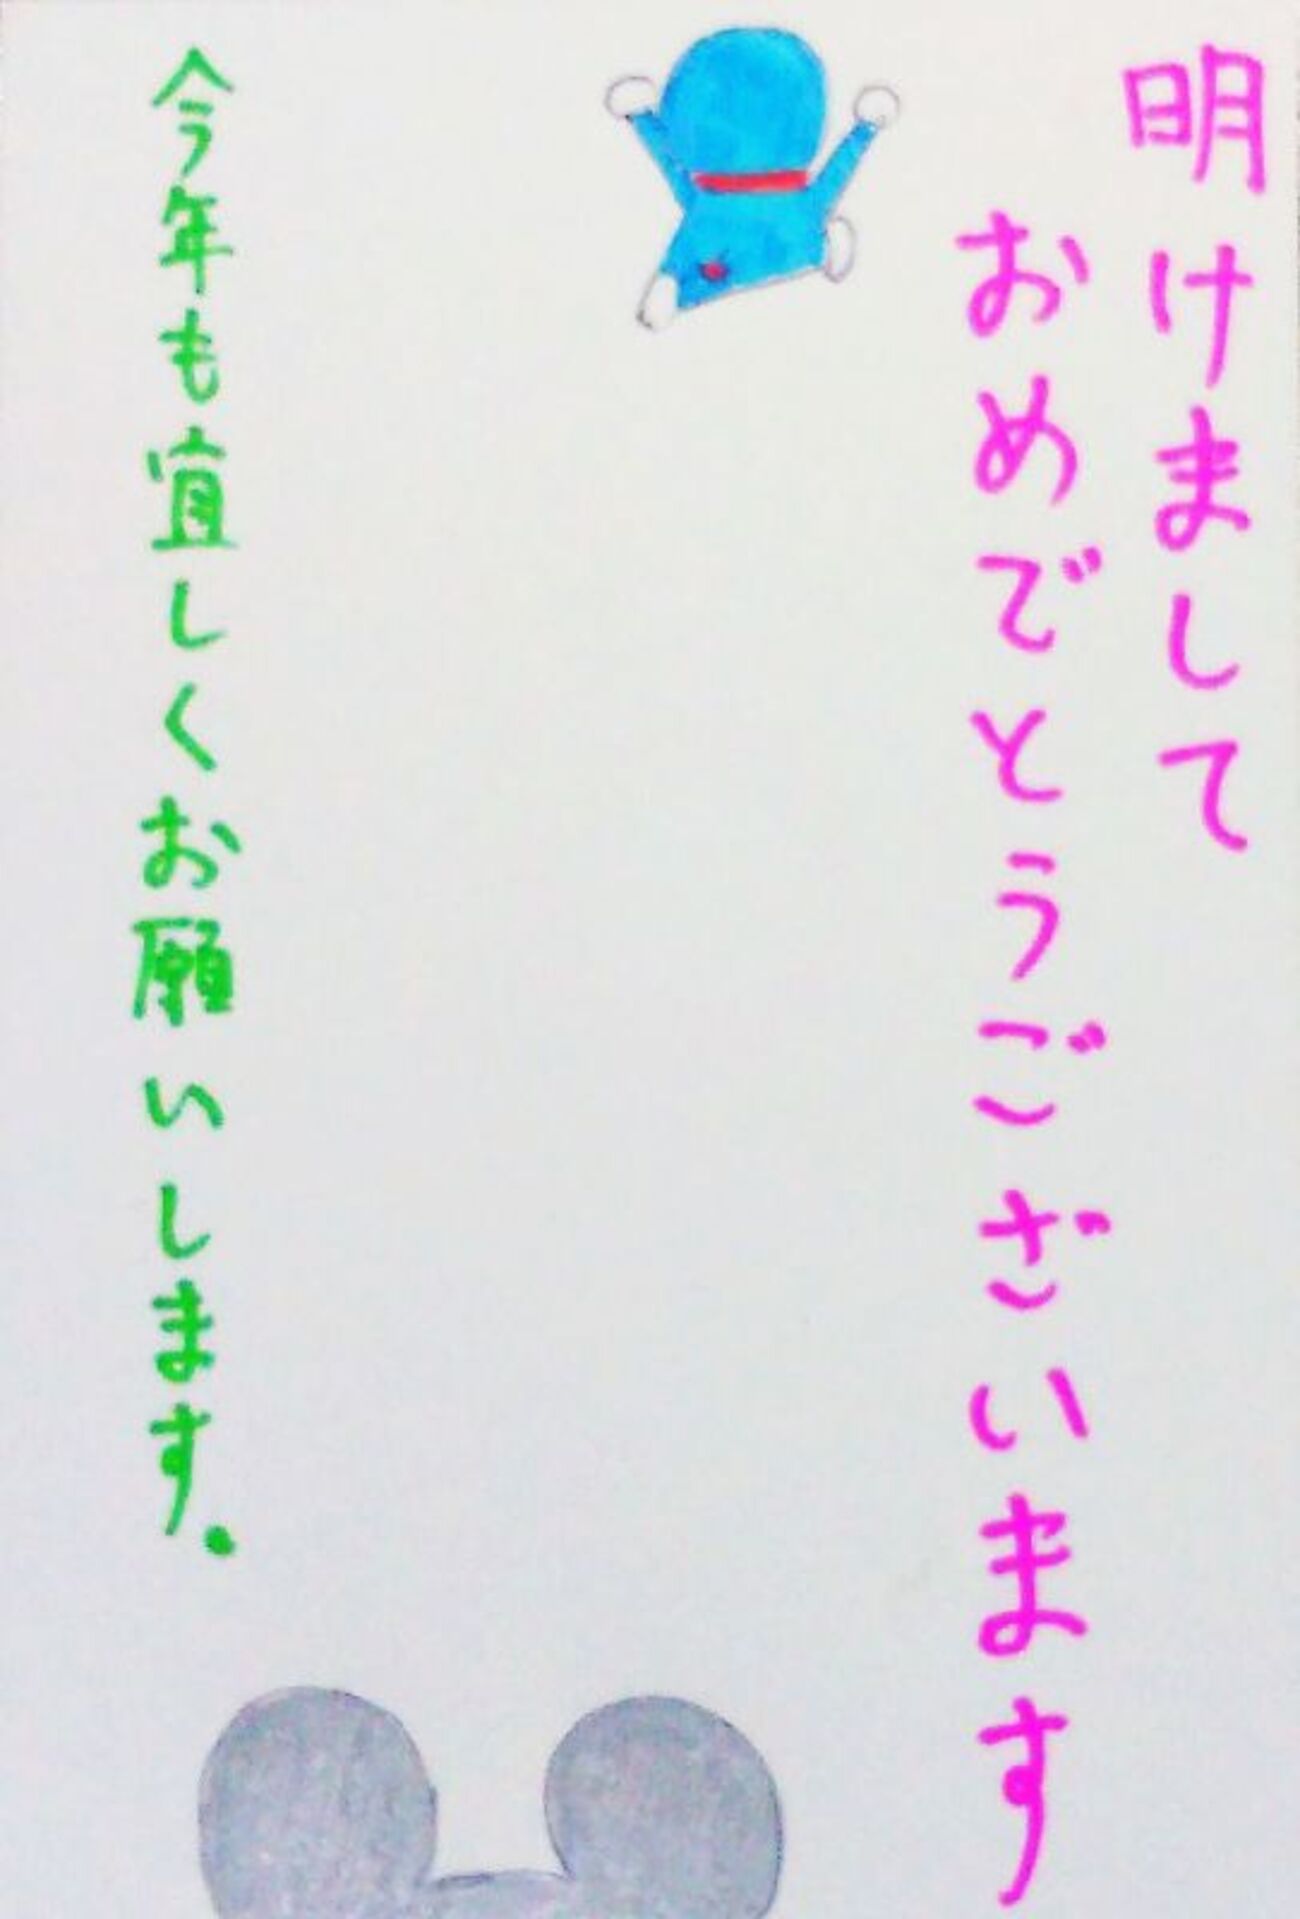 明けまして
おめでとうございます
今年も宜しくお願いします。